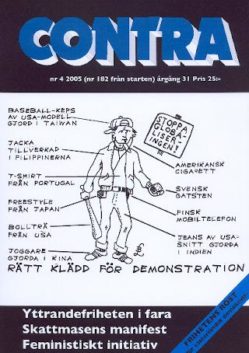 CONTRA
nr 4 2005 (nr 182 från starten) årgång 31 Pris 25:-
BASEBALL-KEPS
AV USA-MODELL
GJORD I TAIWAN
JACKA
TILLVERKAD
I FILIPPINERNA
T-SHIRT
FRÅN PORTUGAL
FREESTYLE
FRÅN JAPAN
BOLLTRÄ
FRÅN USA
JOGGARE
GJORDA I KINA
STOPPA
GLOBA-
LISER-
INGEN!
AMERIKANSK
CIGARETT
SVENSK
GATSTEN
FINSK
MOBILTELEFON
JEANS AV USA-
SNITT GJORDA
I INDIEN
RÄTT KLÄDD FÖR DEMONSTRATION
Yttrandefriheten i fara
Skattmasens manifest
Feministiskt initiativ
FRIHETENS RÖST